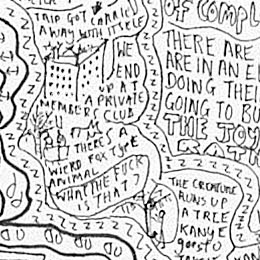 TRIP GOT CARRIED
AWAY WITH ITSELF
WE
END
UP AT
A PRIVATE
MEMBERS CLUB
THERES A
WIERD FOX TYPE
ANIMAL
WHAT THE FUCK
IS THAT?
OF COMPL
THERE ARE
ARE IN AN EL
DOING THEI
GOING TO BU
THE JOY
THE CREATURE
RUNS UP
A TREE
KANYE
goes to